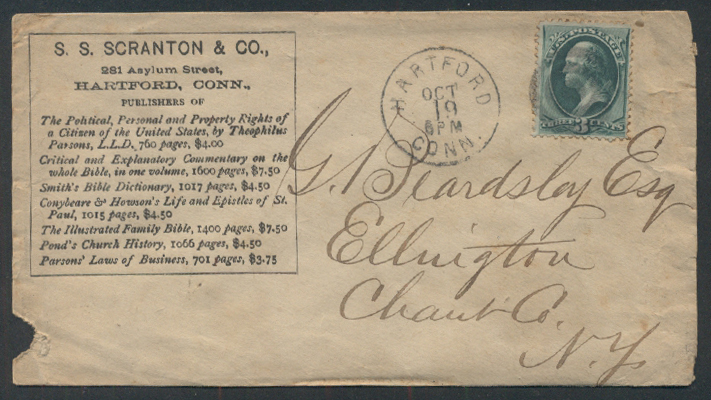 S. S. SCRANTON & CO.,
281 Asylum Street,
HARTFORD, CONN.,
PUBLISHERS OF
The Political, Personal and Property Rights of
a Citizen of the United States, by Theophilus
Parsons, L.L.D., 760 pages, $4.00
Critical and Explanatory Commentary on the
whole Bible, in one volume, 1600 pages, $7.50
Smith's Bible Dictionary, 1017 pages, $4.50
Conybeare & Howson's Life and Epistles of St.
Paul, 1015 pages, $4.50
The Illustrated Family Bible, 1400 pages, $7.50
Pond's Church History, 1066 pages, $4.50
Parsons' Laws of Business, 701 pages, $3.75
HARTFORD
OCT
19
6PM
CONN.
U.S. POSTAGE
THREE 3 CENTS
G. Beardsley Esq
Ellington
Chaut Co.
N.Y.